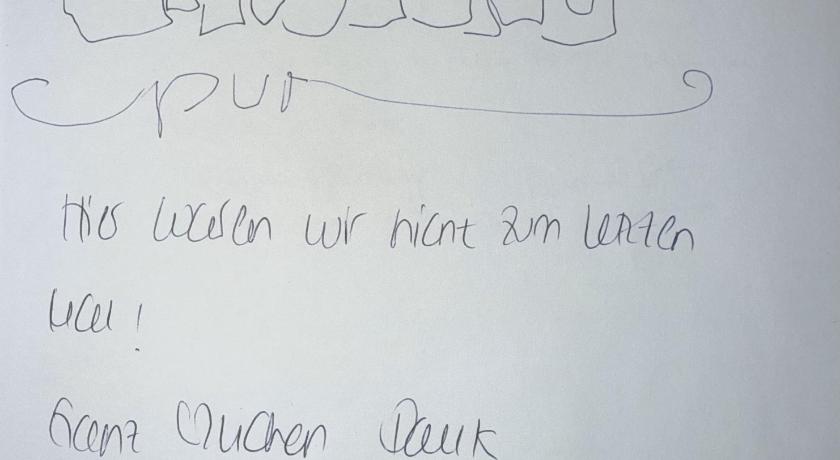 pur
Hier waren wir nicht zum letzten
Mal!
Ganz lichen Dank